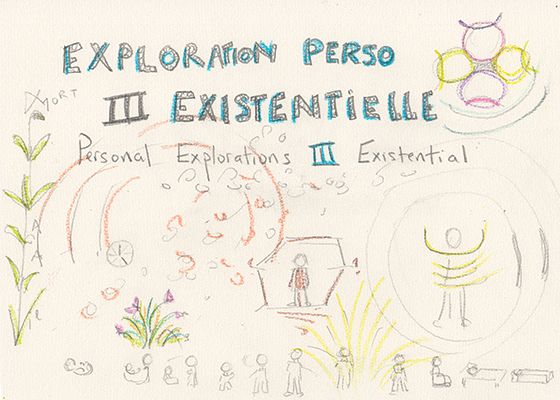 EXPLORATION PERSO
III EXISTENTIELLE
MORT
Personal Explorations III Existential